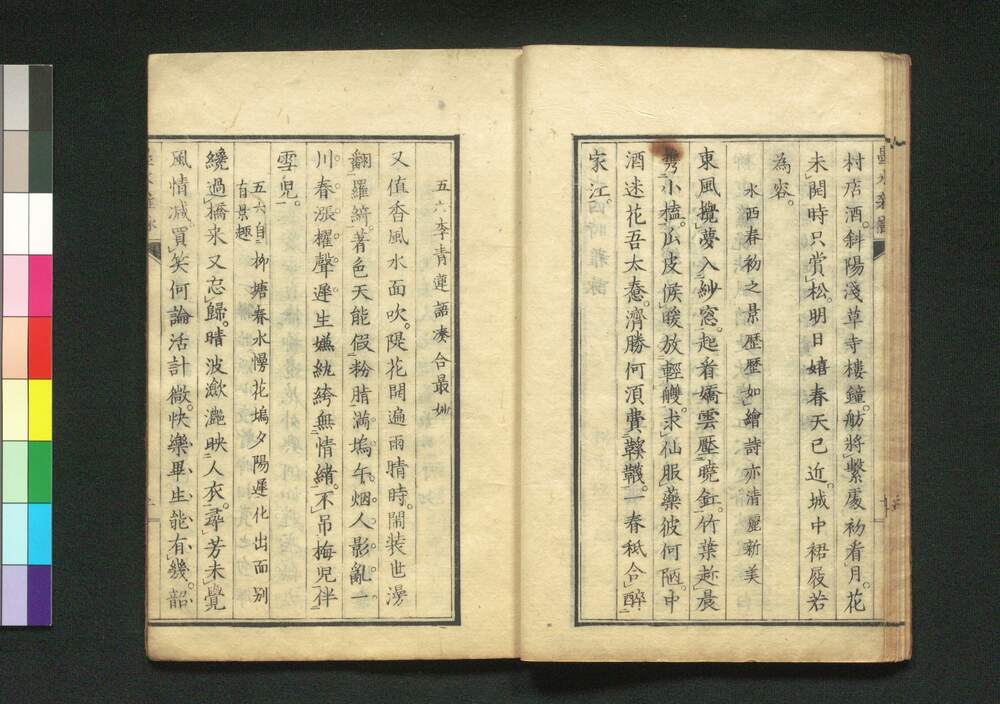 村店酒。斜陽淺草寺樓鐘。舫將繫處初看月。花
未開時只賞松。明日嬉春天已近。城中裙屐若
為容。
水西春初之景歷歷如繪詩亦清麗新美
東風攪夢入紗窓。起看嬌雲壓曉釭。竹葉趁晨
携小榼。瓜皮候暖放輕艭。求仙服藥彼何陋。中
酒迷花吾太憃。濟勝何須費鞵韈。一春秖合醉
家江。
五六李青蓮語湊合最妙
又值香風水面吹。隄花開遍雨晴時。閙裝世漫
翻羅綺。著色天能假粉脂。滿塢午烟人影亂。一
川春漲櫂聲遲。生嫌紈綺無情緒。不弔梅兒伴
雪兒。
五六自柳塘春水慢花塢夕陽遲化出面别
有景趣
繞過橋來又忘歸。晴波瀲灧映人衣。尋芳未覺
風情減。買笑何論活計微。快樂畢生能有幾。韶